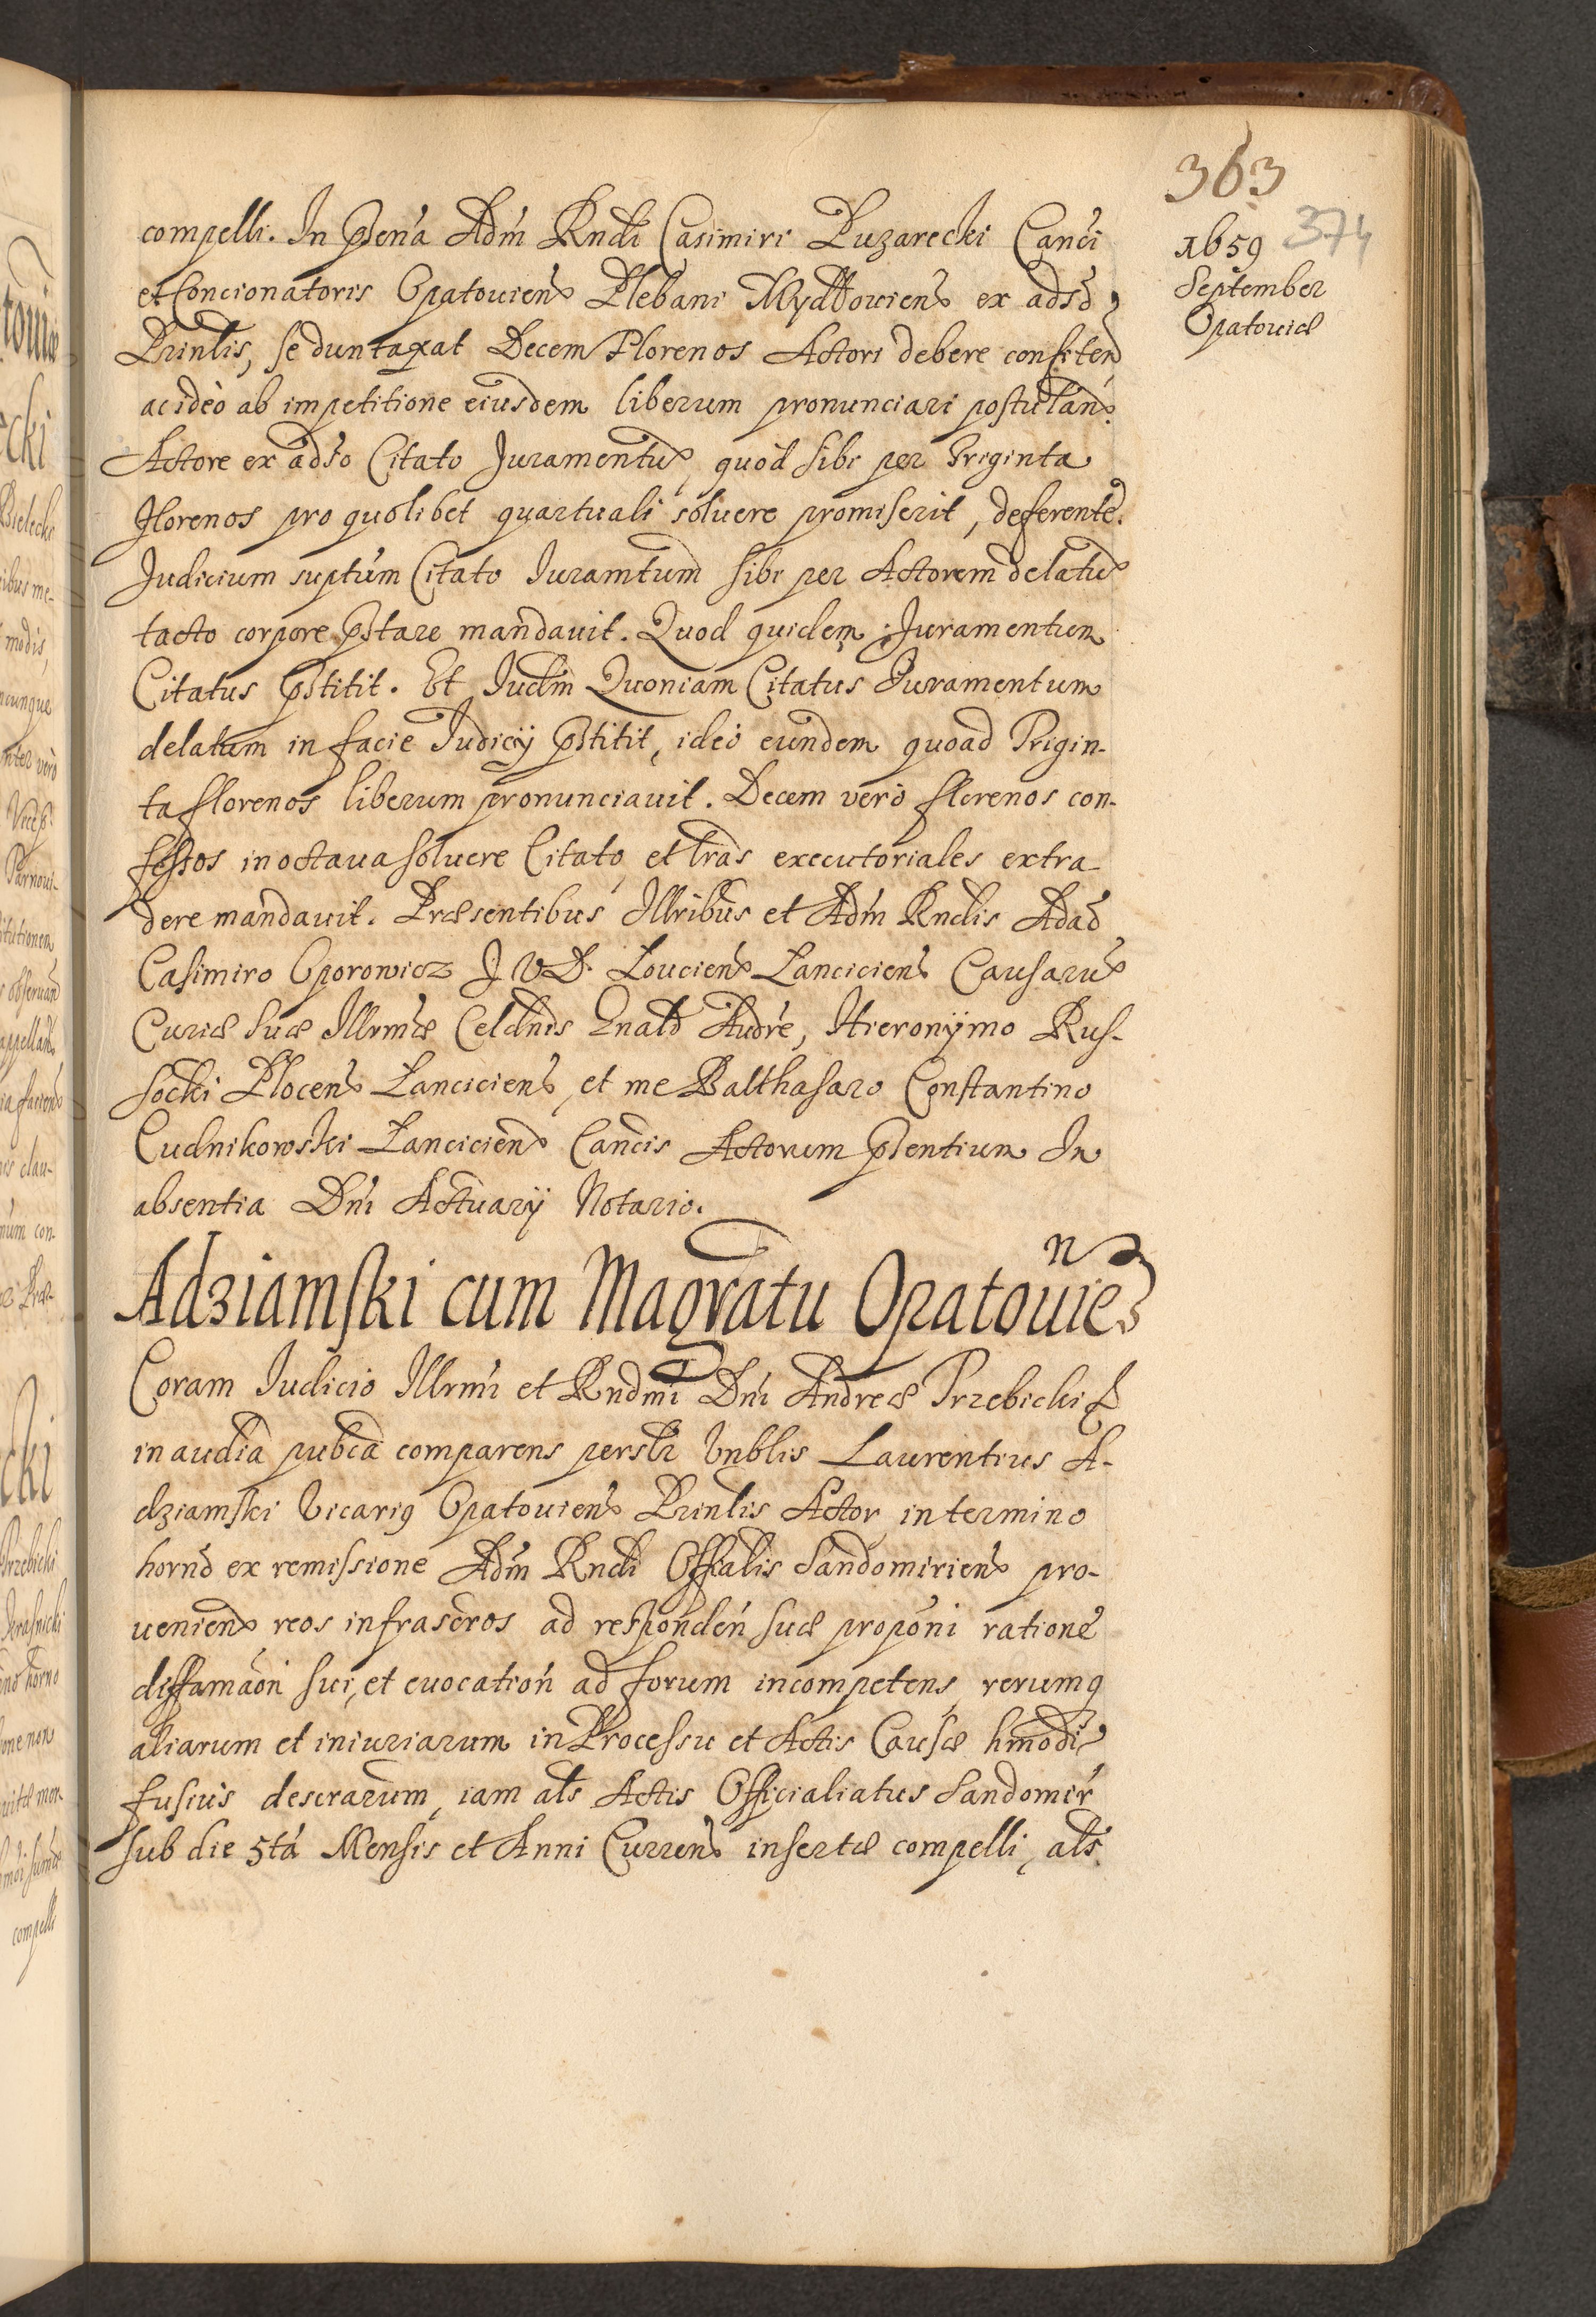 363
374
1659
September
Opatouiæ
compelli. In Pñtia Adm̃ Rndi Casimiri Puzarecki Canci
et Concionatoris Opatouien Plebani Mydłouien ex adso
Prinlis, se duntaxat Decem Florenos Actori debere confiten
ac ideò ab impetitione eiusdem liberum pronunciari postulan.
Actore ex adso Citato Juramentu, quòd sibi per Triginta
florenos pro quolibet quartuali soluere promiserit, deferente.
Judicium suptum Citato Juramtum sibi per Actorem delatu
tacto corpore pstare mandauit. Quod quidem Juramentum
Citatus pstitit. Et Judm Quoniam Citatus Juramentum
delatum in facie Judicÿ pstitit, ideò eundem quoad Trigin-
ta florenos liberum pronunciauit. Decem verò florenos con-
fessos in octaua soluere Citato, et lras executoriales extra-
dere mandauit. Præsentibus Illribus et Adm Rndis Adao
Casimiro Oporowicz J V D. Louicien Lancicien Causaru
Curiæ Suæ Illrmæ Celdnis Gnali Audre, Hieronÿmo Rus-
socki Plocen Lancicien, et me Balthasaro Constantino
Cudnikowski Lancicien Cancis Actorum psentium In
absentia Dni Actuarÿ Notario.
Adziamski cum Magratu Opatouien
Coram Judicio Illrmi et Rndmi Dni Andreæ Trzebicki &
in audia pubca comparens persłr Vnblis Laurentius A-
dziamski Vicarig Opatouien Prinlis Actor in termino
horno ex remissione Adm Rndi Offialis Sandomirien pro-
uenien reos infrascros ad responden suæ proponi ratione
diffamaoni sui, et euocation ad forum incompetens, rerumq
aliarum et iniuriarum in Processu et Actis Causæ hmodi
fusiùs descrarum, iam als Actis Officialiatus Sandomir
sub die 5ta Mensis et Anni Curren insertæ compelli, als